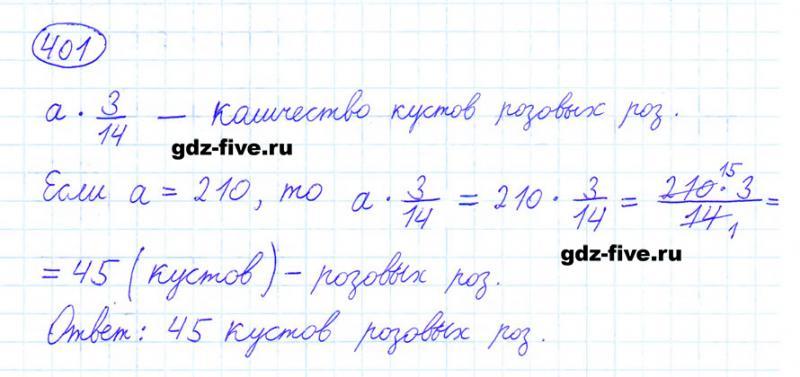 401
a · 3/14 — количество кустов розовых роз.
gdz-five.ru
Если a = 210, то a · 3/14 = 210 · 3/14 = 210 15 · 3/14 1 =
gdz-five.ru
= 45 (кустов) – розовых роз.
Ответ: 45 кустов розовых роз.